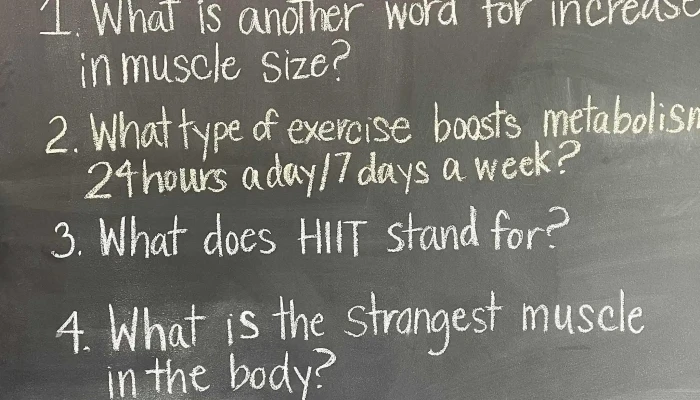 1. What is another word for increase
in muscle size?
2. What type of exercise boosts metabolism
24 hours a day/7 days a week?
3. What does HIIT stand for?
4. What is the strangest muscle
in the body?